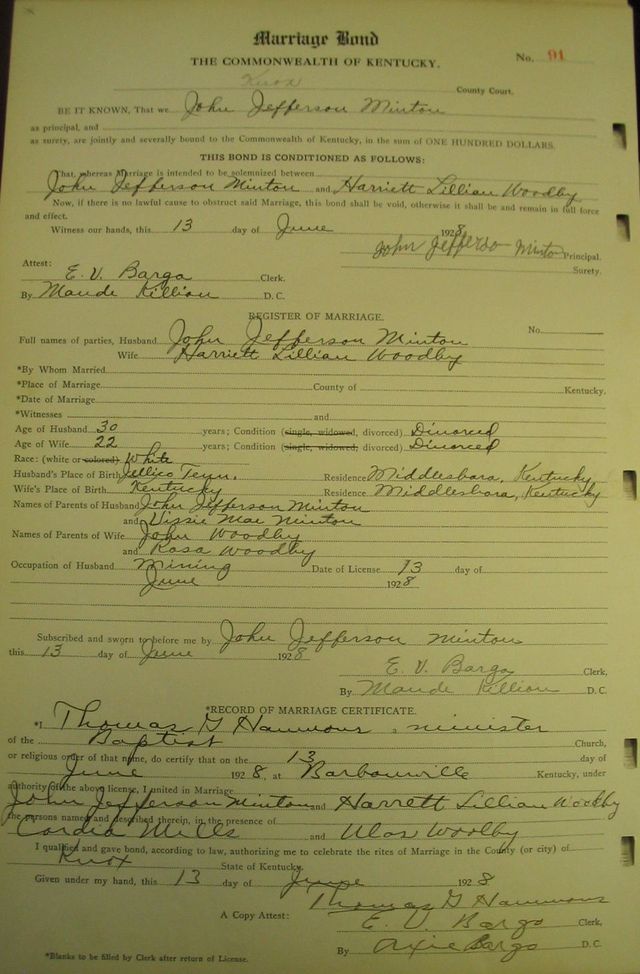 Marriage Bond
THE COMMONWEALTH OF KENTUCKY.
No. 91
Knox County Court.
BE IT KNOWN, That we John Jefferson Minton
as principal, and
as surety, are jointly and severally bound to the Commonwealth of Kentucky, in the sum of ONE HUNDRED DOLLARS.
THIS BOND IS CONDITIONED AS FOLLOWS:
That, whereas Marriage is intended to be solemnized between
John Jefferson Minton and Harriett Lillian Woodby
Now, if there is no lawful cause to obstruct said Marriage, this bond shall be void, otherwise it shall be and remain in full force
and effect.
Witness our hands, this 13 day of June 1928.
John Jefferso Minton Principal.
Surety.
Attest:
E. V. Bargo Clerk.
By Maude Killion D. C.
REGISTER OF MARRIAGE.
No.
Full names of parties, Husband John Jefferson Minton
Wife Harriett Lillian Woodby
*By Whom Married
*Place of Marriage County of Kentucky.
*Date of Marriage
*Witnesses and
Age of Husband 30 years; Condition (single, widowed, divorced) Divorced
Age of Wife 22 years; Condition (single, widowed, divorced) Divorced
Race: (white or colored) White
Husband's Place of Birth Jellico Tenn. Residence Middlesboro, Kentucky
Wife's Place of Birth Kentucky Residence Middlesboro, Kentucky
Names of Parents of Husband John Jefferson Minton
and Vissie Mae Minton
Names of Parents of Wife John Woodby
and Rosa Woodby
Occupation of Husband Mining Date of License 13 day of
June 1928
Subscribed and sworn to before me by John Jefferson Minton
this 13 day of June 1928
E. V. Bargo Clerk,
By Maude Killion D. C.
*RECORD OF MARRIAGE CERTIFICATE.
*I Thomas G Hammons, minister
of the Baptist Church,
or religious order of that name, do certify that on the 13 day of
June 1928, at Barbourville Kentucky, under
authority of the above license, I united in Marriage
John Jefferson Minton and Harrett Lillian Woodby
the persons named and described therein, in the presence of
Cordia Mills and Ulas Woolby
I qualified and gave bond, according to law, authorizing me to celebrate the rites of Marriage in the County (or city) of
Knox State of Kentucky.
Given under my hand, this 13 day of June 1928
Thomas G Hammons
A Copy Attest: E. V. Bargo Clerk,
By Bargo D. C.
*Blanks to be filled by Clerk after return of License.